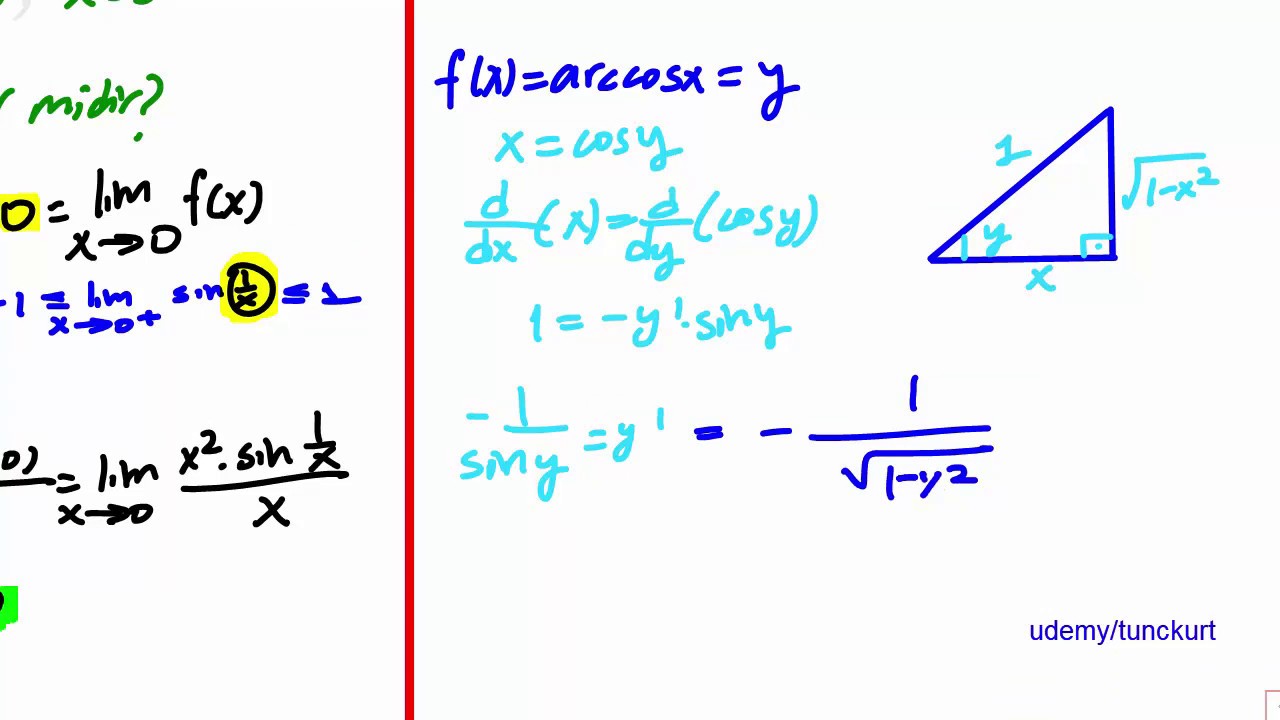 midir?
0 = lim x→0 f(x)
-1 ≤ lim x→0+ sin 1/x ≤ 1
0) = lim x→0 x². sin 1/x / x
f(x) = arccosx = y
x = cosy
d/dx (x) = d/dy (cosy)
1 = -y'. siny
- 1/siny = y' = - 1/√1-x²
1
√1-x²
y
x
udemy/tunckurt